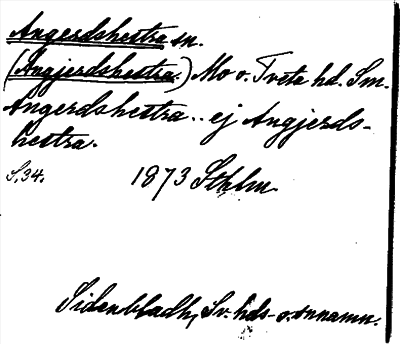 Angerdshestra sn.
(Angjerdshestra.) Mo o. Tveta hd. Sm.
Angerdshestra .. ej Angjerds-
hestra.
S. 34. 1873 Sthlm.
Sidenbladh, Sv. hds- o. snnamn.